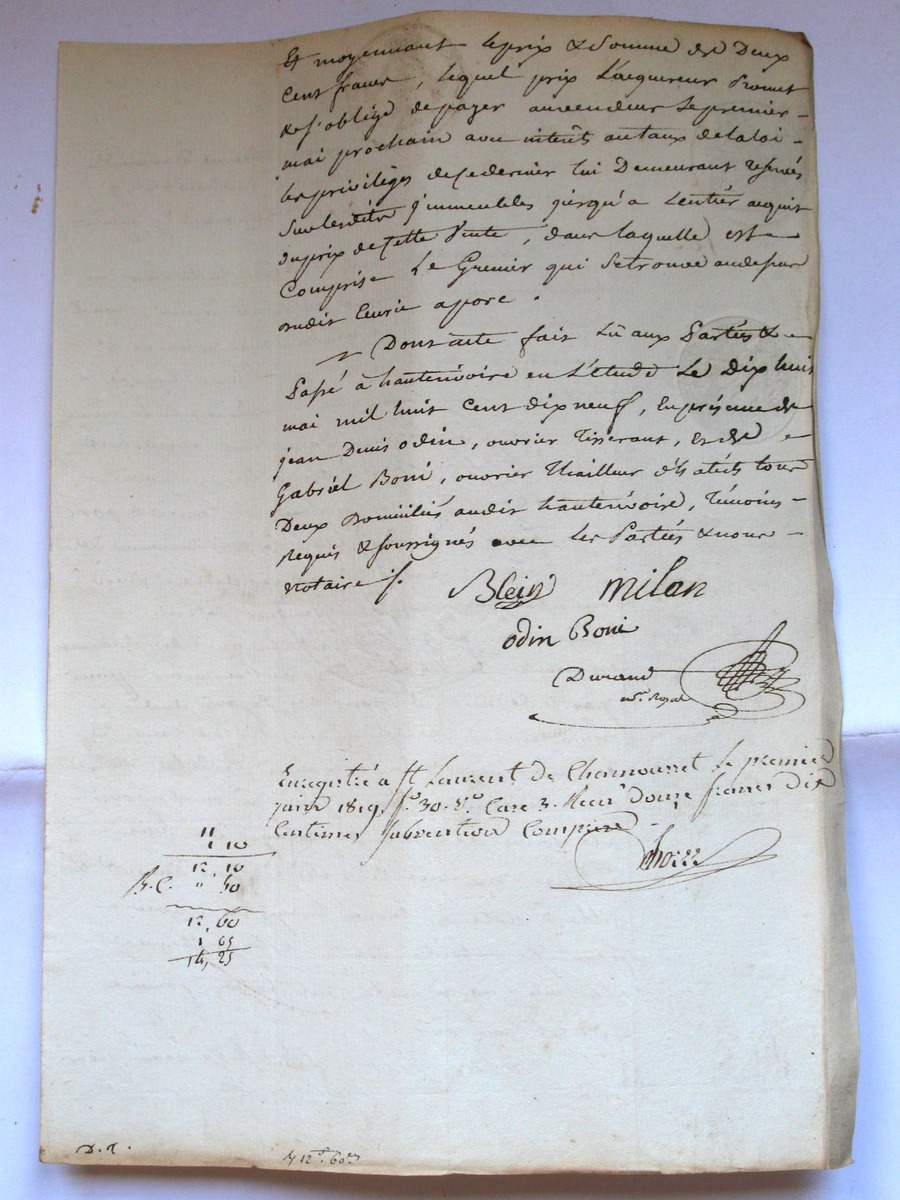 Et moyennant le prix & Somme de Deux
Cent francs, lequel prix L'acquereur Promet
& s'oblige de payer au vendeur Le premier
mai prochain avec intérêts au taux de la loi
les privilèges de ce dernier lui Demeurant reservés
Sur lesdits immeubles jusqu'a L'entier acquit
du prix de Cette Vente, dans laquelle est
Comprise Le Grenier qui Se trouve
audit
Dont acte fait Lû aux Parties &
Passé à hauterivoire en L'étude Le Dix huit
mai mil huit Cent dix neuf, En présence de
jean Denis odin, ouvrier Tisserant, et de
Gabriël Boni, ouvrier Thailleur d'habits tous
Deux Domiciliés audit hauterivoire, Témoins
Requis & soussignés avec les Parties & nous
Notaire ./.
Blein milan
odin Boni
Durand
Enregistré a St Laurent de Chamousset Le premier
juin 1819, f.o 30. v.o Case 3. Recu douze francs dix
Centimes subvention Comprise
11
1 10
12, 10
" 50
12, 60
1 65
14, 25